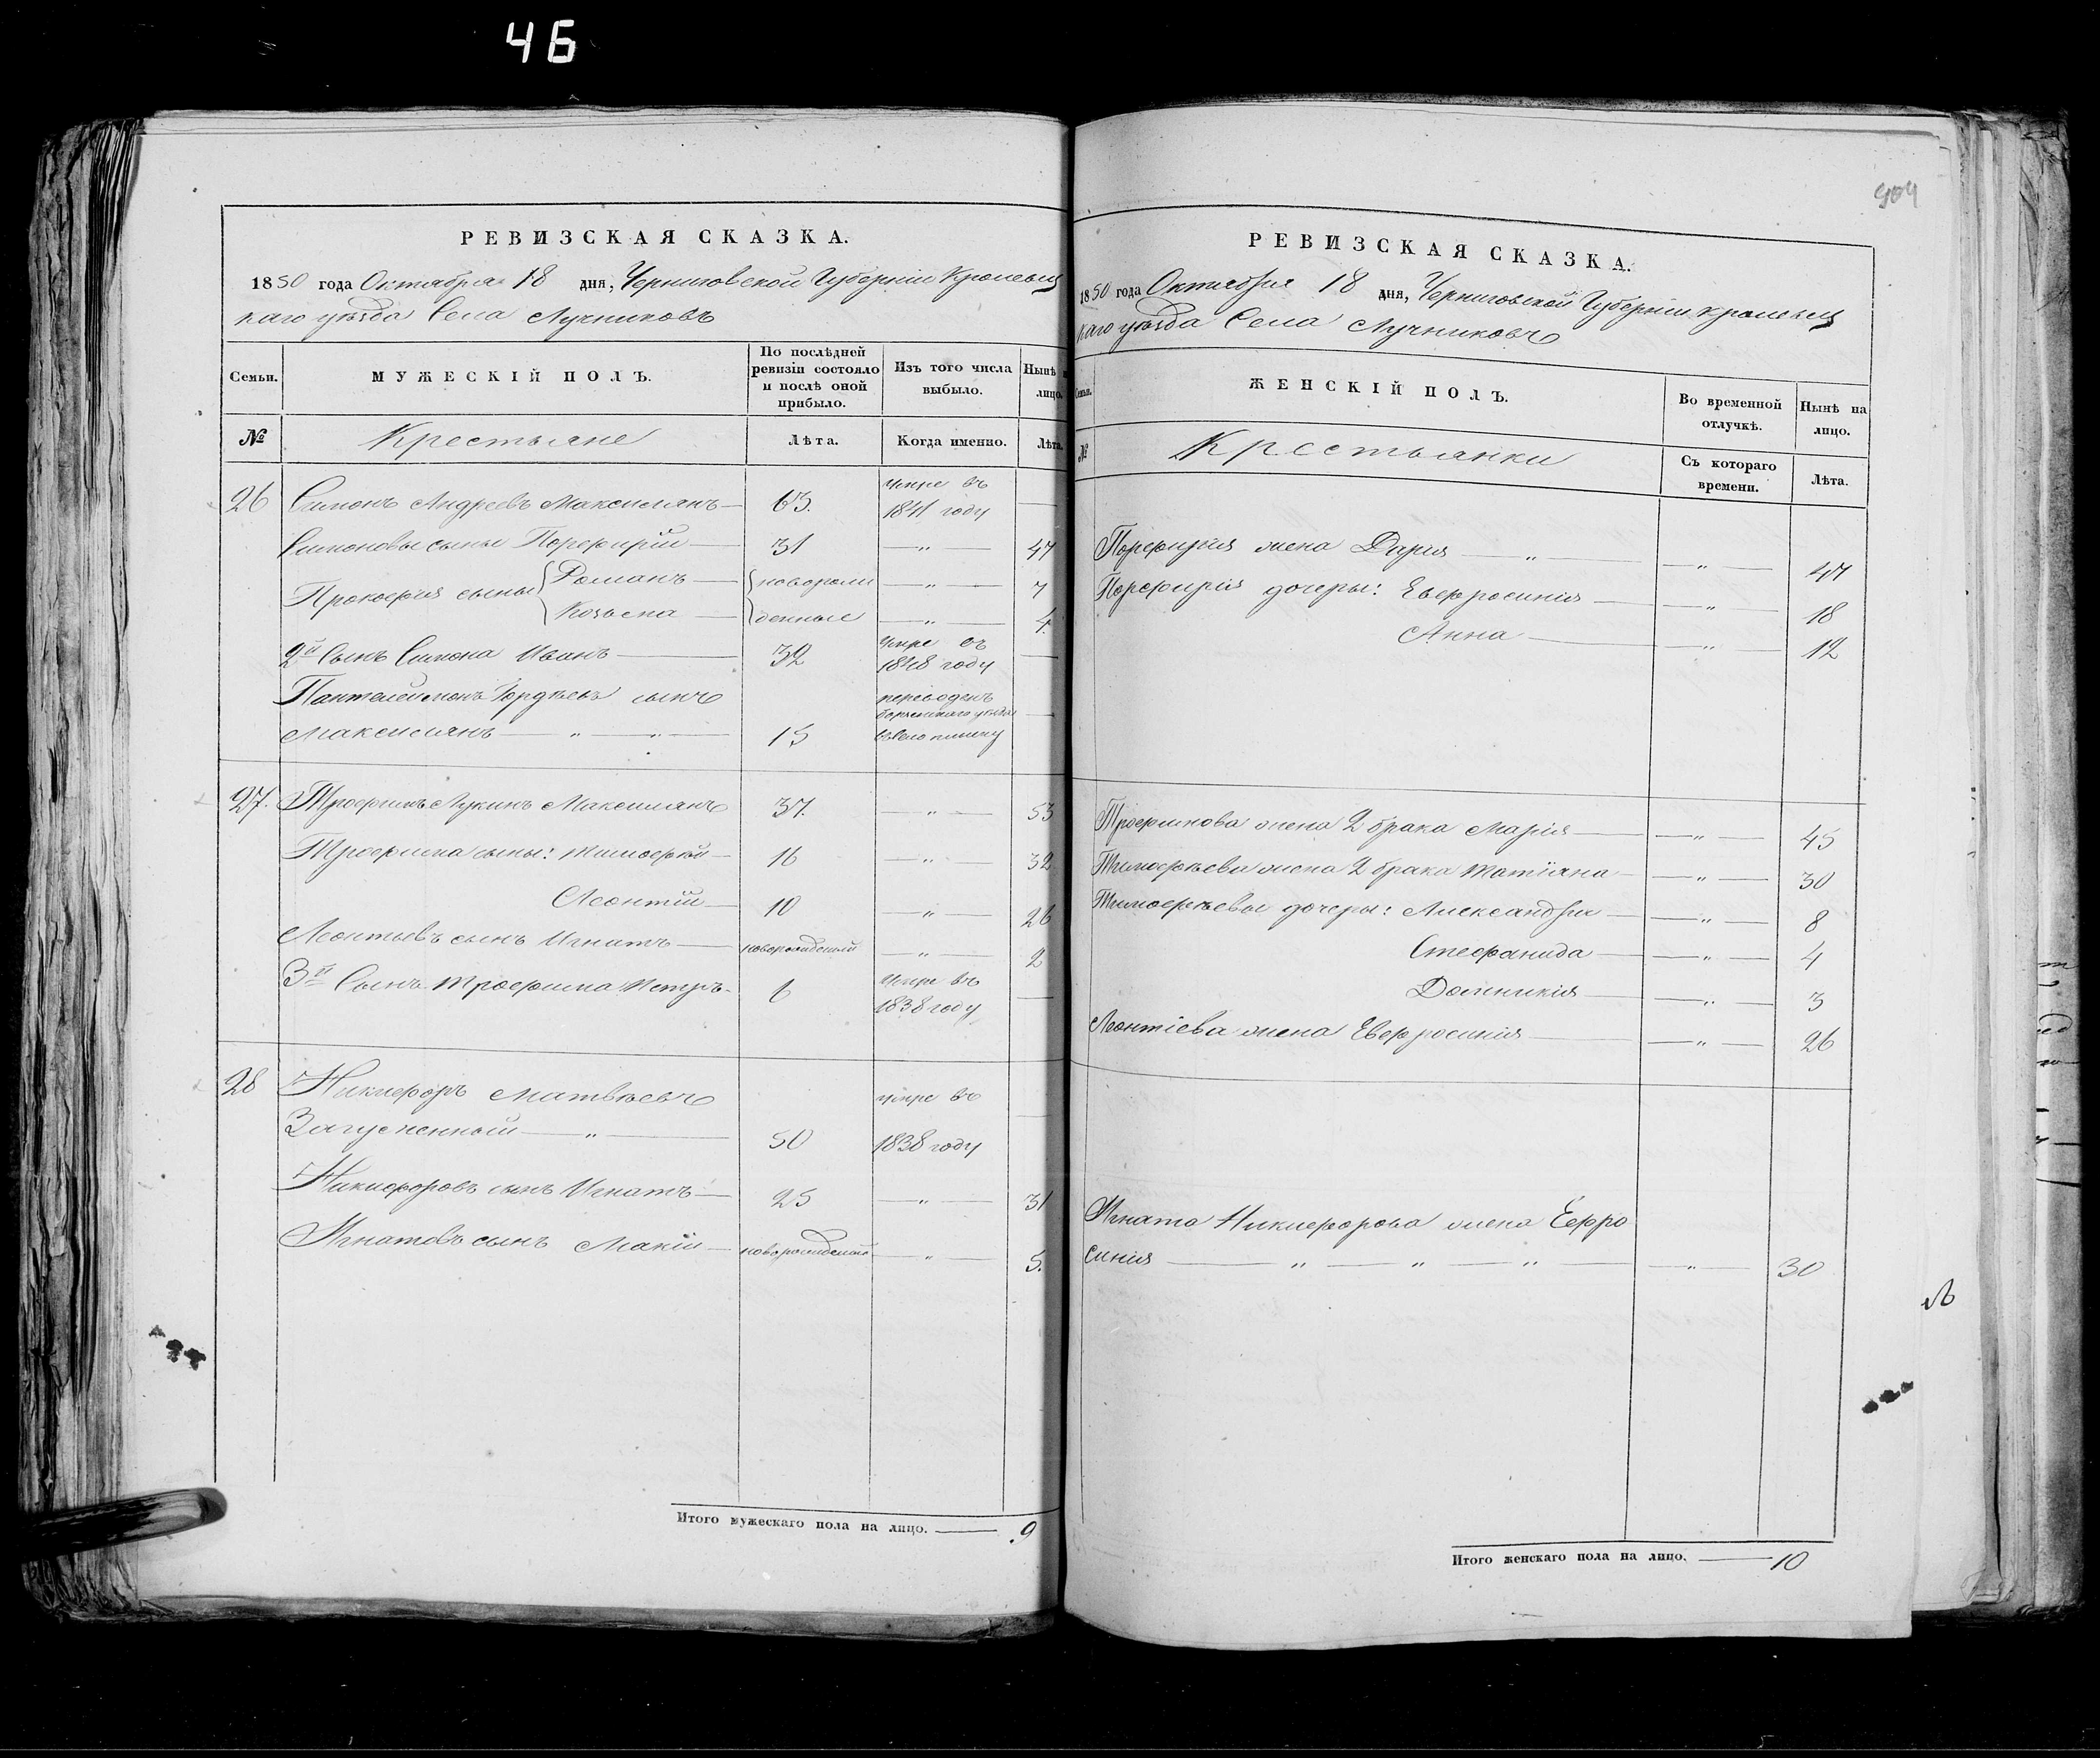 46
РЕВИЗСКАЯ СКАЗКА.
1850 года Октября 18 дня, Черниговской Губерніи Кролевец
каго уѣзда Села Лучниковъ
Семьи. МУЖЕСКІЙ ПОЛЪ. По послѣдней ревизіи состояло и послѣ оной прибыло. Изъ того числа выбыло. Нынѣ лицо.
№ Крестьяне Лѣта. Когда именно. Лѣта.
26 Симонъ Андреевъ Максимянъ — 63. умре въ 1841 году —
Симоновы сыны Порфирій — 31 — „ — 47
Прокофія сыны { Романъ — { новорож — „ — 7
Козьма — { денные — „ — 4.
2й Сынъ Симона Иванъ — 32 умре въ 1848 году —
Пантелеймонъ Гордѣевъ сынъ переведенъ
Максимянъ — „ — „ — 15
27. Трофимъ Лукинъ Максимянъ 37. — „ — 53
Трофима сыны: Тимофей — 16 — „ — 32
Леонтій — 10 — „ — 26
Леонтьевъ сынъ Игнатъ — новорожденный — „ — 2
3й Сынъ Трофима Петръ - 6 умре въ 1838 году —
28 Никифоръ Матвѣевъ умре въ
50 1838 году —
Никифоровъ сынъ Игнатъ — 25 — „ — 31
Игнатовъ сынъ — новорожденный — „ — 5.
Итого мужескаго пола на лицо. — 9
904
РЕВИЗСКАЯ СКАЗКА.
1850 года Октября 18 дня, Черниговской Губерніи Кролевец
каго уѣзда Села Лучниковъ
Семьи. ЖЕНСКІЙ ПОЛЪ. Во временной отлучкѣ. Нынѣ на лицо.
№ Крестьянки Съ котораго времени. Лѣта.
Порфирія жена Дарія — „ — — „ — 47
Порфирія дочеры: Евфросинія — — „ — 18
Анна — — „ — 12
Трофимова жена 2 брака Марія — — „ — 45
Тимофѣева жена 2 брака Татіяна — — „ — 30
Тимофѣевы дочеры: Александра — — „ — 8
Стефанида — — „ — 4
Домникія — — „ — 3
Леонтіева жена Евфросинія — — „ — 26
Игната Никифорова жена Ефро
синія — „ — „ — „ — — „ — 30
Итого женскаго пола на лицо. — 10